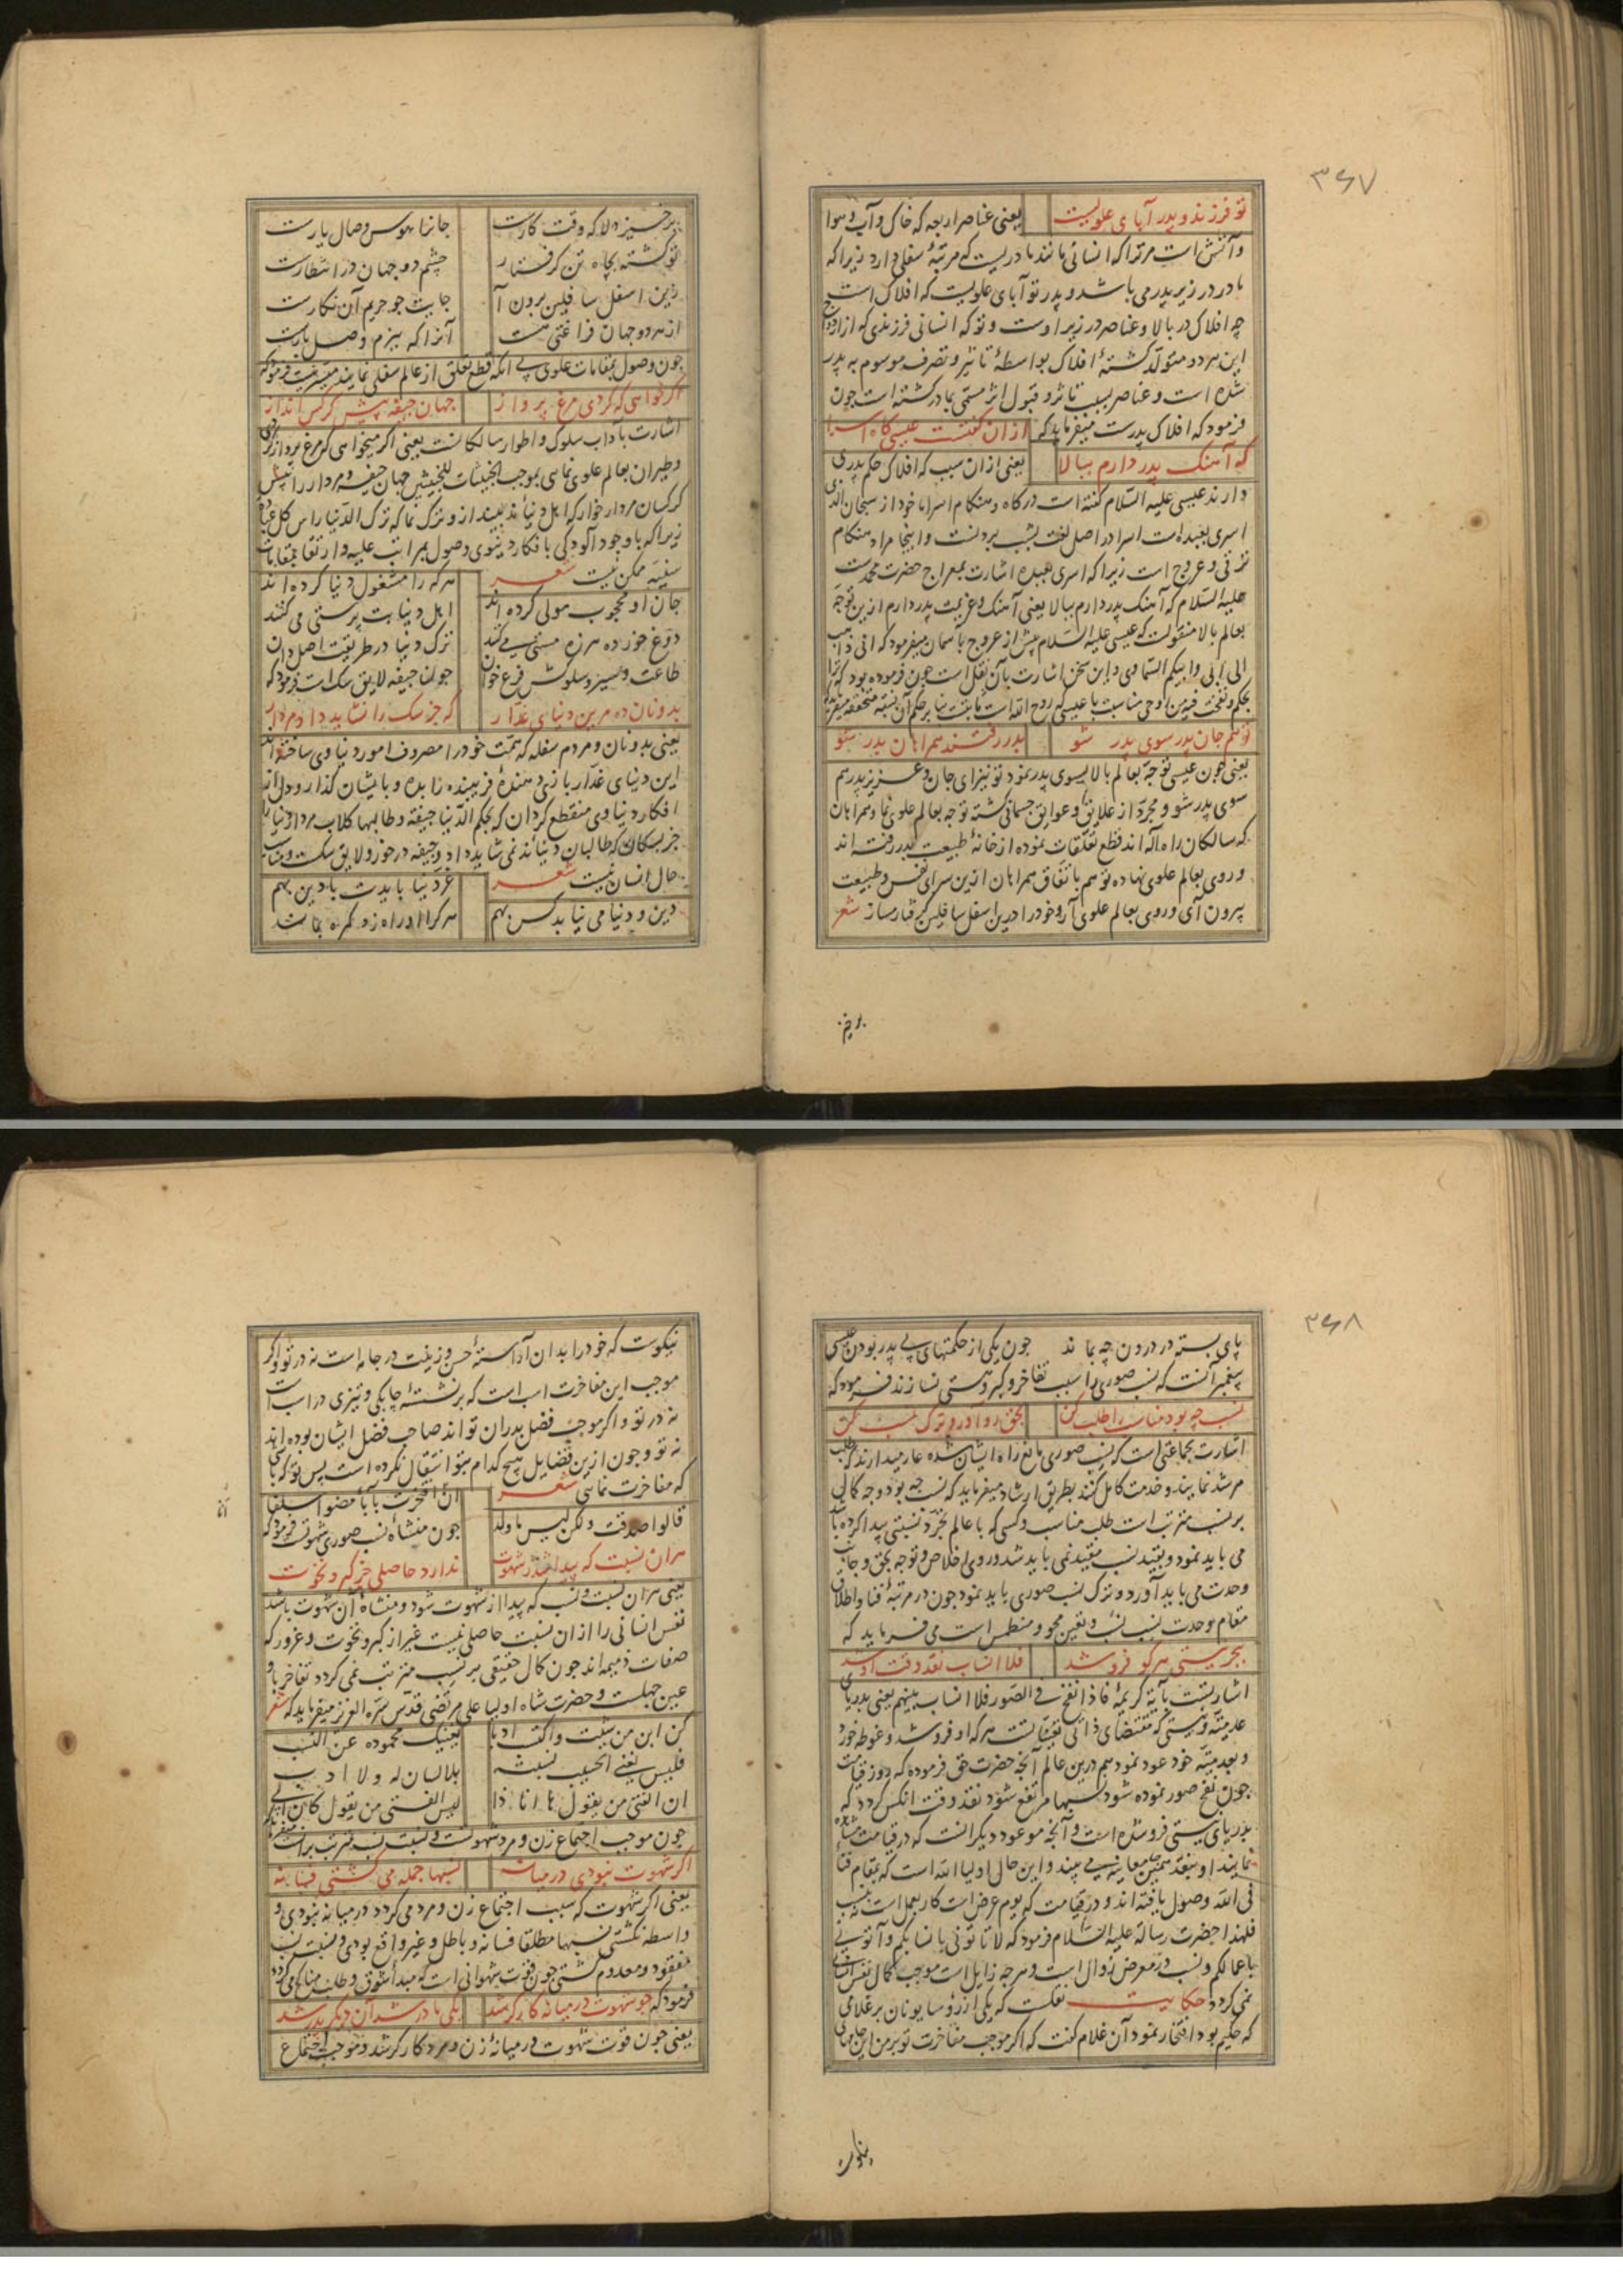 ۳۶۷
تو فرزند و پدر آبای علویست یعنی عناصر اربعه که خاک و آب و هوا
و آتش است مر ترا که انسانی مانند مادریست که مرتبهٔ سفلی دارد زیرا که
مادر در زیر پدر می باشد و پدر تو آبای علویست که افلاک است
چه افلاک در بالا و عناصر در زیر اوست و تو که انسانی فرزندی که از ازدواج
این هر دو متولد گشتهٔ افلاک بواسطهٔ تاثیر و تصرف موسوم به پدر
شده است و عناصر بسبب تاثر و قبول اثر مسمی بمادر گشته است چون
فرمود که افلاک پدرست میفرماید که از ان گفتست عیسی گاه اسرا
که آهنگ پدر دارم ببالا یعنی ازان سبب که افلاک حکم پدری
دارند عیسی علیه السلام گفته است در گاه و هنگام اسرا ماخود از سبحان الذی
اسری بعبده است اسرا در اصل لغت بشب بردنست و اینجا مراد هنگام
ترقی و عروج است زیرا که اسری بعبده اشارت بمعراج حضرت محمدست
علیه السلام که آهنگ پدر دارم ببالا یعنی آهنگ و عزیمت پدر دارم ازین توجه
بعالم بالا منقولست که عیسی علیه السلام پیش از عروج بآسمان میفرمود که انی ذاهب
الی ابی و ابیکم السماوی و این سخن اشارت بآن نقل است چون فرموده بود که ترا
بحکم و نفخت فیه من روحی مناسبت با عیسی که روح الله است ثابتست بنا بر حکم آن نسبة متحققه میفرماید
تو هم جان پدر سوی پدر شو بدر رفتند همراهان بدر شو
یعنی چون عیسی توجه بعالم بالا بسوی پدر نمود تو نیز ای جان و عزیز پدر هم
سوی پدر شو و مجرد از علایق و عوایق جسمانی گشته توجه بعالم علوی نما و همراهان
که سالکان راه آله اند قطع تعلقات نموده از خانهٔ طبیعت بدر رفته اند
و روی بعالم علوی نهاده تو هم باتفاق همراهان ازین سرای نفس و طبیعت
بیرون آی و روی بعالم علوی آر و خود را درین اسفل سافلین گرفتار مساز شعر
برخیز
برخیز دلا که وقت کارست جانرا هوس وصال یارست
تو گشته بچاه تن گرفتار چشم دو جهان در انتظارست
زین اسفل سافلین برون آ جایت چو حریم آن نگارست
از هر دو جهان فراغتی هست آنرا که ببزم وصل یارست
چون وصول بمقامات علوی بی انکه قطع تعلق از عالم سفلی نمایند میسر نیست فرمود که
اگر خواهی که گردی مرغ پرواز جهان جیفه پیش کرکس انداز
اشارت بآداب سلوک و اطوار سالکانست یعنی اگر میخواهی که مرغ پرواز گردی
و طیران بعالم علوی نمایی بموجب الخبیثات للخبیثین جهان جیفه و مردار را پیش
کرکسان مردار خوار که اهل دنیا اند بینداز و ترک نما که ترک الدنیا راس کل عبادة
زیرا که با وجود آلودگی بافکار دنیوی وصول بمراتب علیه و ارتقا بمقامات
سنیه ممکن نیست شعر هر که را مشغول دنیا کرده اند
جان او محجوب مولی کرده اند اهل دنیا بت پرستی می کنند
دوغ خورده هرزه مستی می کنند ترک دنیا در طریقت اصل دان
طاعت و سیر و سلوکش فرع خوان چو انجیفه لایق سک است فرمود که
بدونان ده مرین دنیای غدار که جز سک را نشاید داد مردار
یعنی بدونان و مردم سفله که همت خود را مصروف امور دنیاوی ساخته اند
این دنیای غدار بازی دهندهٔ فریبنده را بده و بایشان گذار و دل از
افکار دنیاوی منقطع گردان که بحکم الدنیا جیفة و طالبها کلاب مردار دنیا را
جز بسکان که طالبان دنیا اند نمی شاید داد و جیفه درخور و لایق سکست و مناسب
حال انسان نیست شعر غر دنیا بایدت با دین بهم
دین و دنیا می نیابد کس بهم هر که را او راه زد گمره بماند
۳۶۸
پای بسته در درون چه بماند چون یکی از حکمتهای بی پدر بودن عیسی
پیغمبر آنست که نسب صوری را سبب تفاخر و کبر و هستی نسازند فرمود که
نسب چه بود مناسب را طلب کن بحق رو آور و ترک نسب کن
اشارت بجماعتی است که نسب صوری مانع راه ایشان شده عار میدارند که طلب
مرشد نمایند و خدمت کامل کنند بطریق ارشاد میفرماید که نسب چه بود و چه کمالی
بر نسب مترتب است طلب مناسب و کسی که با عالم تجرد نسبتی پیدا کرده باشد
می باید نمود و بقید نسب مقید نمی باید شد و روی اخلاص و توجه بحق و جانب
وحدت می باید آورد و ترک نسب صوری باید نمود چون در مرتبهٔ فنا و اطلاق
مقام وحدت نسب نسب و تعین محو و منطمس است می فرماید که
ببحر نیستی هر کو فرو شد فلا انساب نقد وقت او شد
اشارتست بآیهٔ کریمهٔ فاذا نفخ فی الصور فلا انساب بینهم یعنی بدریای
عدمیته و نیستی که مقتضای ذاتی تعیناتست هر که او فرو شد و غوطه خورد
و بعدمیته خود عود نمود هم درین عالم آنچه حضرت حق فرموده که روز قیامت
چون نفخ صور نموده شود نسبها مرتفع شود نقد وقت انکس گردد که
بدریای نیستی فرو شده است و آنچه موعود دیگرانست که در قیامت مشاهده
نمایند او بنقد همین جا معاینه می بیند و این حال اولیا الله است که بمقام فنا
فی الله وصول یافته اند و در قیامت که یوم عرض است کار بعمل است نه بنسب
فلهذا حضرت رسالة علیه السلام فرمود که لا تاتونی بانسابکم و آتونی
باعمالکم و نسب در معرض زوال است و هر چه زایل است موجب کمال نفس انسانی
نمی گردد حکایت نقلست که یکی از رؤسا یونان بر غلامی
که حکیم بود افتخار نمود آن غلام گفت که اگر موجب مفاخرت تو بر من این جامهای
نیکوست
نیکوست که خود را بدان آراستهٔ حسن و زینت در جامه است نه در تو و اگر
موجب این مفاخرت اسب است که بر نشستهٔ چابکی و تیزی در اسب است
نه در تو و اگر موجب فضل پدران تو اند صاحب فضل ایشان بوده اند
نه تو و چون ازین فضایل هیچ کدام بتو انتقال نکرده است پس تو که باشی
که مفاخرت نمایی شعر ان افتخرت بآباء مضوا سلفا
قالوا صدقت ولکن لبیس ما ولد چون منشاء نسب صوری شهوتست فرمود که
هران نسبت که پیدا شد ز شهوت ندارد حاصلی جز کبر و نخوت
یعنی هران نسبت و نسب که پیدا از شهوت شود و منشاء آن شهوت باشد
نفس انسانی را ازان نسبت حاصلی نیست غیر از کبر و نخوت و غرور که
صفات ذمیمه اند چون کمال حقیقی بر نسب مترتب نمی گردد تفاخر باو
عین جهلست و حضرت شاه اولیا علی مرتضی قدس سره العزیز میفرماید که شعر
کن ابن من شئت و اکتسب ادبا یغنیک محموده عن النسب
فلیس یغنی الحسیب نسبته بلا لسان له ولا ادب
ان الفتی من یقول ها انا ذا لیس الفتی من یقول کان ابی
چون موجب اجتماع زن و مرد شهوتست و نسبت نسب مترتب بر انست میفرماید که
اگر شهوت نبودی در میانه نسبها جمله می گشتی فسانه
یعنی اگر شهوت که سبب اجتماع زن و مرد می گردد در میانه نبودی و
واسطه نگشتی نسبها مطلقا فسانه و باطل و غیر واقع بودی و نسبت نسب
مفقود و معدوم گشتی چون قوت شهوانی است که مبدأ شوق و طلب مناکح می گردد
فرمود که چو شهوت در میانه کارگر شد یکی مادر شد آن دیگر پدر شد
یعنی چون قوت شهوت در میانهٔ زن و مرد کارگر شد و موجب اجتماع